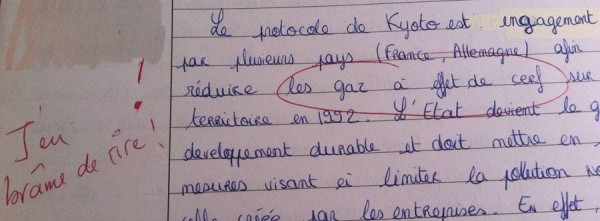 Le potocole de Kyoto est engagement
par plusieurs pays (France, Allemagne) afin
réduire les gaz à effet de cerf sur
territoire en 1992. L'Etat devient le g
developpement durable et doit mettre en
mesures visant ei limiter la pollution
créée par les entreprises. En effet,
!
J'en
brâme de rire !